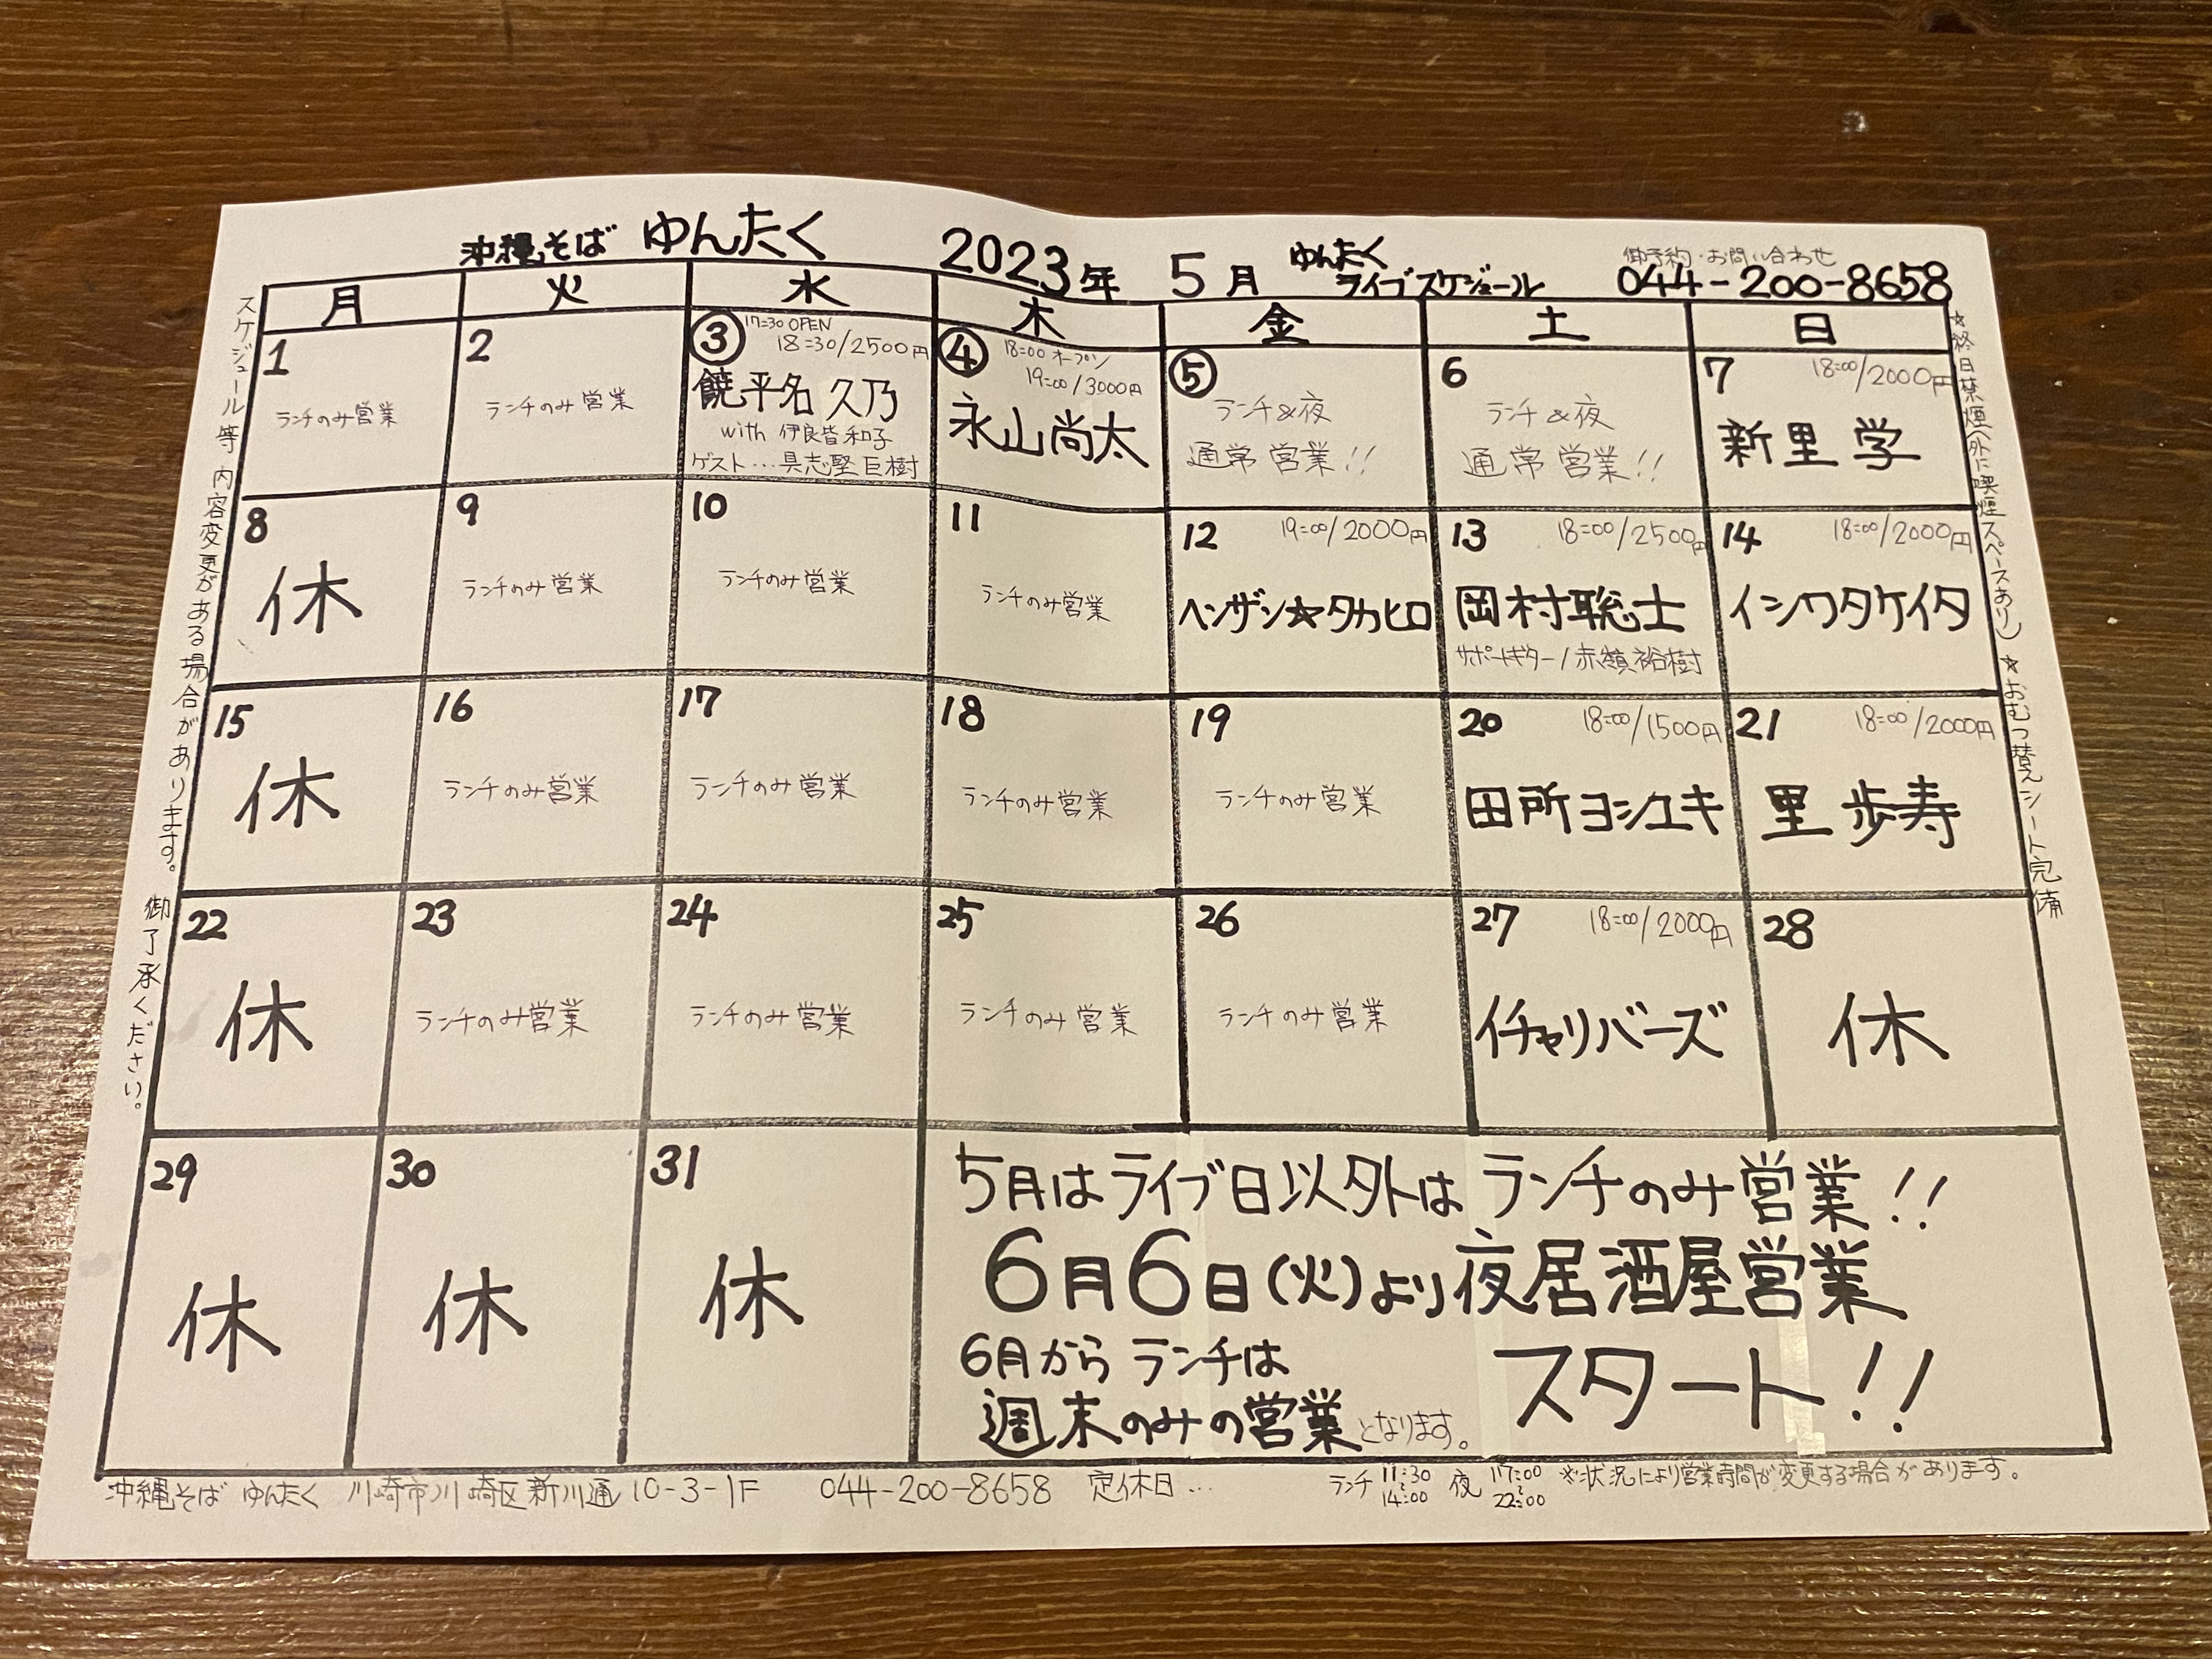 沖縄そば ゆんたく 2023年 5月 ゆんたく ライブスケジュール
御予約・お問い合わせ
044-200-8658
月 火 水 木 金 土 日
1
ランチのみ営業
2
ランチのみ営業
③ 17:30 OPEN
18:30/2500円
饒平名 久乃
with 伊良皆 和子
ゲスト…具志堅 巨樹
④ 18:00 オープン
19:00/3000円
永山尚太
⑤
ランチ&夜
通常営業!!
6
ランチ&夜
通常営業!!
7 18:00/2000円
新里 学
8
休
9
ランチのみ営業
10
ランチのみ営業
11
ランチのみ営業
12 19:00/2000円
ヘンザン☆タカヒロ
13 18:00/2500円
岡村聡士
サポートギター/赤嶺裕樹
14 18:00/2000円
イシワタケイタ
15
休
16
ランチのみ営業
17
ランチのみ営業
18
ランチのみ営業
19
ランチのみ営業
20 18:00/1500円
田所ヨシユキ
21 18:00/2000円
里 歩寿
22
休
23
ランチのみ営業
24
ランチのみ営業
25
ランチのみ営業
26
ランチのみ営業
27 18:00/2000円
イチャリバーズ
28
休
29
休
30
休
31
休
5月はライブ日以外はランチのみ営業!!
6月6日(火)より夜居酒屋営業
スタート!!
6月から ランチは
週末のみの営業となります。
スケジュール等 内容変更がある場合があります。 御了承ください。
☆終日禁煙(外に喫煙スペースあり) ☆おむつ替えシート完備
沖縄そば ゆんたく 川崎市川崎区新川通10-3-1F 044-200-8658 定休日… ランチ 11:30〜14:00 夜 17:00〜22:00 ※状況により営業時間が変更する場合があります。